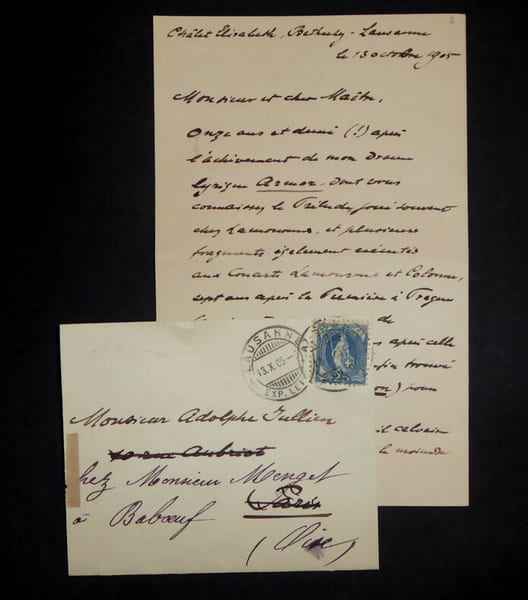 Châlet Elisabeth, Bethusy - Lausanne
le 13 octobre 1905
Monsieur et cher Maître,
Onze ans et demi (!) après
l'achèvement de mon drame
lyrique Armor, dont vous
connaissez le Prélude, joué souvent
chez Lamoureux, et plusieurs
fragments également exécutés
aux Concerts Lamoureux et Colonne,
sept ans après la Première à Prague
de
après celle
fin trouvé
on) pour
il calvaire
le moindre
LAUSANNE
13.X.05
EXP. LET
25
Monsieur Adolphe Jullien
10 rue Aubriot
chez Monsieur Menget
Paris
à Babœuf
(Oise)